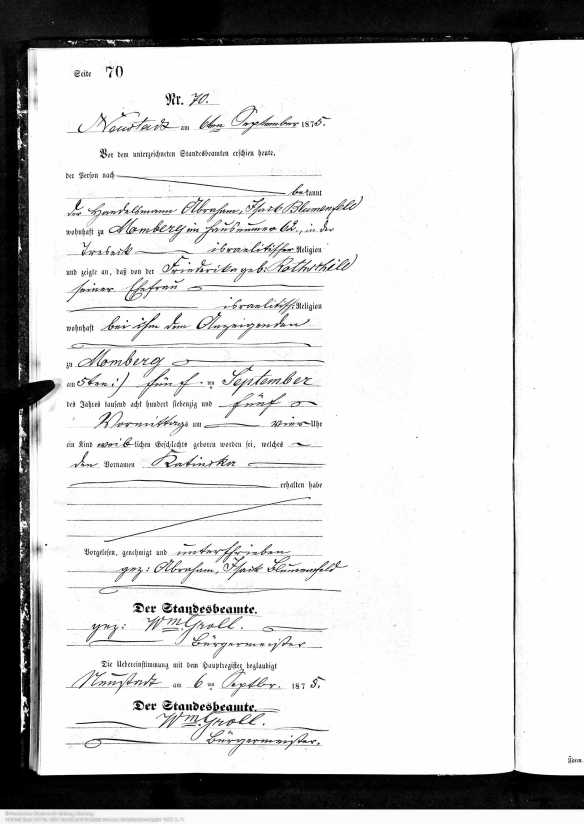 Seite 70
Nr. 70.
Neustadt am 6ten September 1875.
Vor dem unterzeichneten Standesbeamten erschien heute,
der Person nach
bekannt
der Handelsmann Abraham, Isack Blumenfeld
wohnhaft zu Momberg im Hausnumer 62., in der
israelitischer Religion
und zeigte an, daß von der Friederika geb: Rothschild
seiner Ehefrau
israelitisch: Religion
wohnhaft bei ihm dem Anzeigenden
zu Momberg
am 5ten :) fünf ten September
des Jahres tausend acht hundert siebenzig und fünf
Vormittags um vier Uhr
ein Kind weiblichen Geschlechts geboren worden sei, welches
den Vornamen Katinka
erhalten habe
Vorgelesen, genehmigt und unterschrieben
gez: Abraham, Isack Blumenfeld
Der Standesbeamte.
gez: Wm. Groll.
Bürgermeister
Die Uebereinstimmung mit dem Hauptregister beglaubigt
Neustadt am 6ten Septbr. 1875.
Der Standesbeamte.
Wm. Groll.
Bürgermeister.